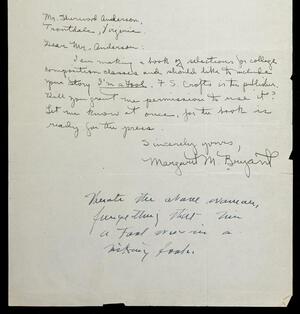 Mr. Sherwood Anderson,
Troutdale, Virginia.
Dear Mr. Anderson:
I am making a book of selections for college
composition classes and should like to include
your story I'm a Fool. F. S. Crofts is the publisher.
Will you grant me permission to use it?
Let me know at once, for the book is
ready for the press.
Sincerely yours,
Margaret M. Bryant
the above woman,
that
a Fool was in a
book.